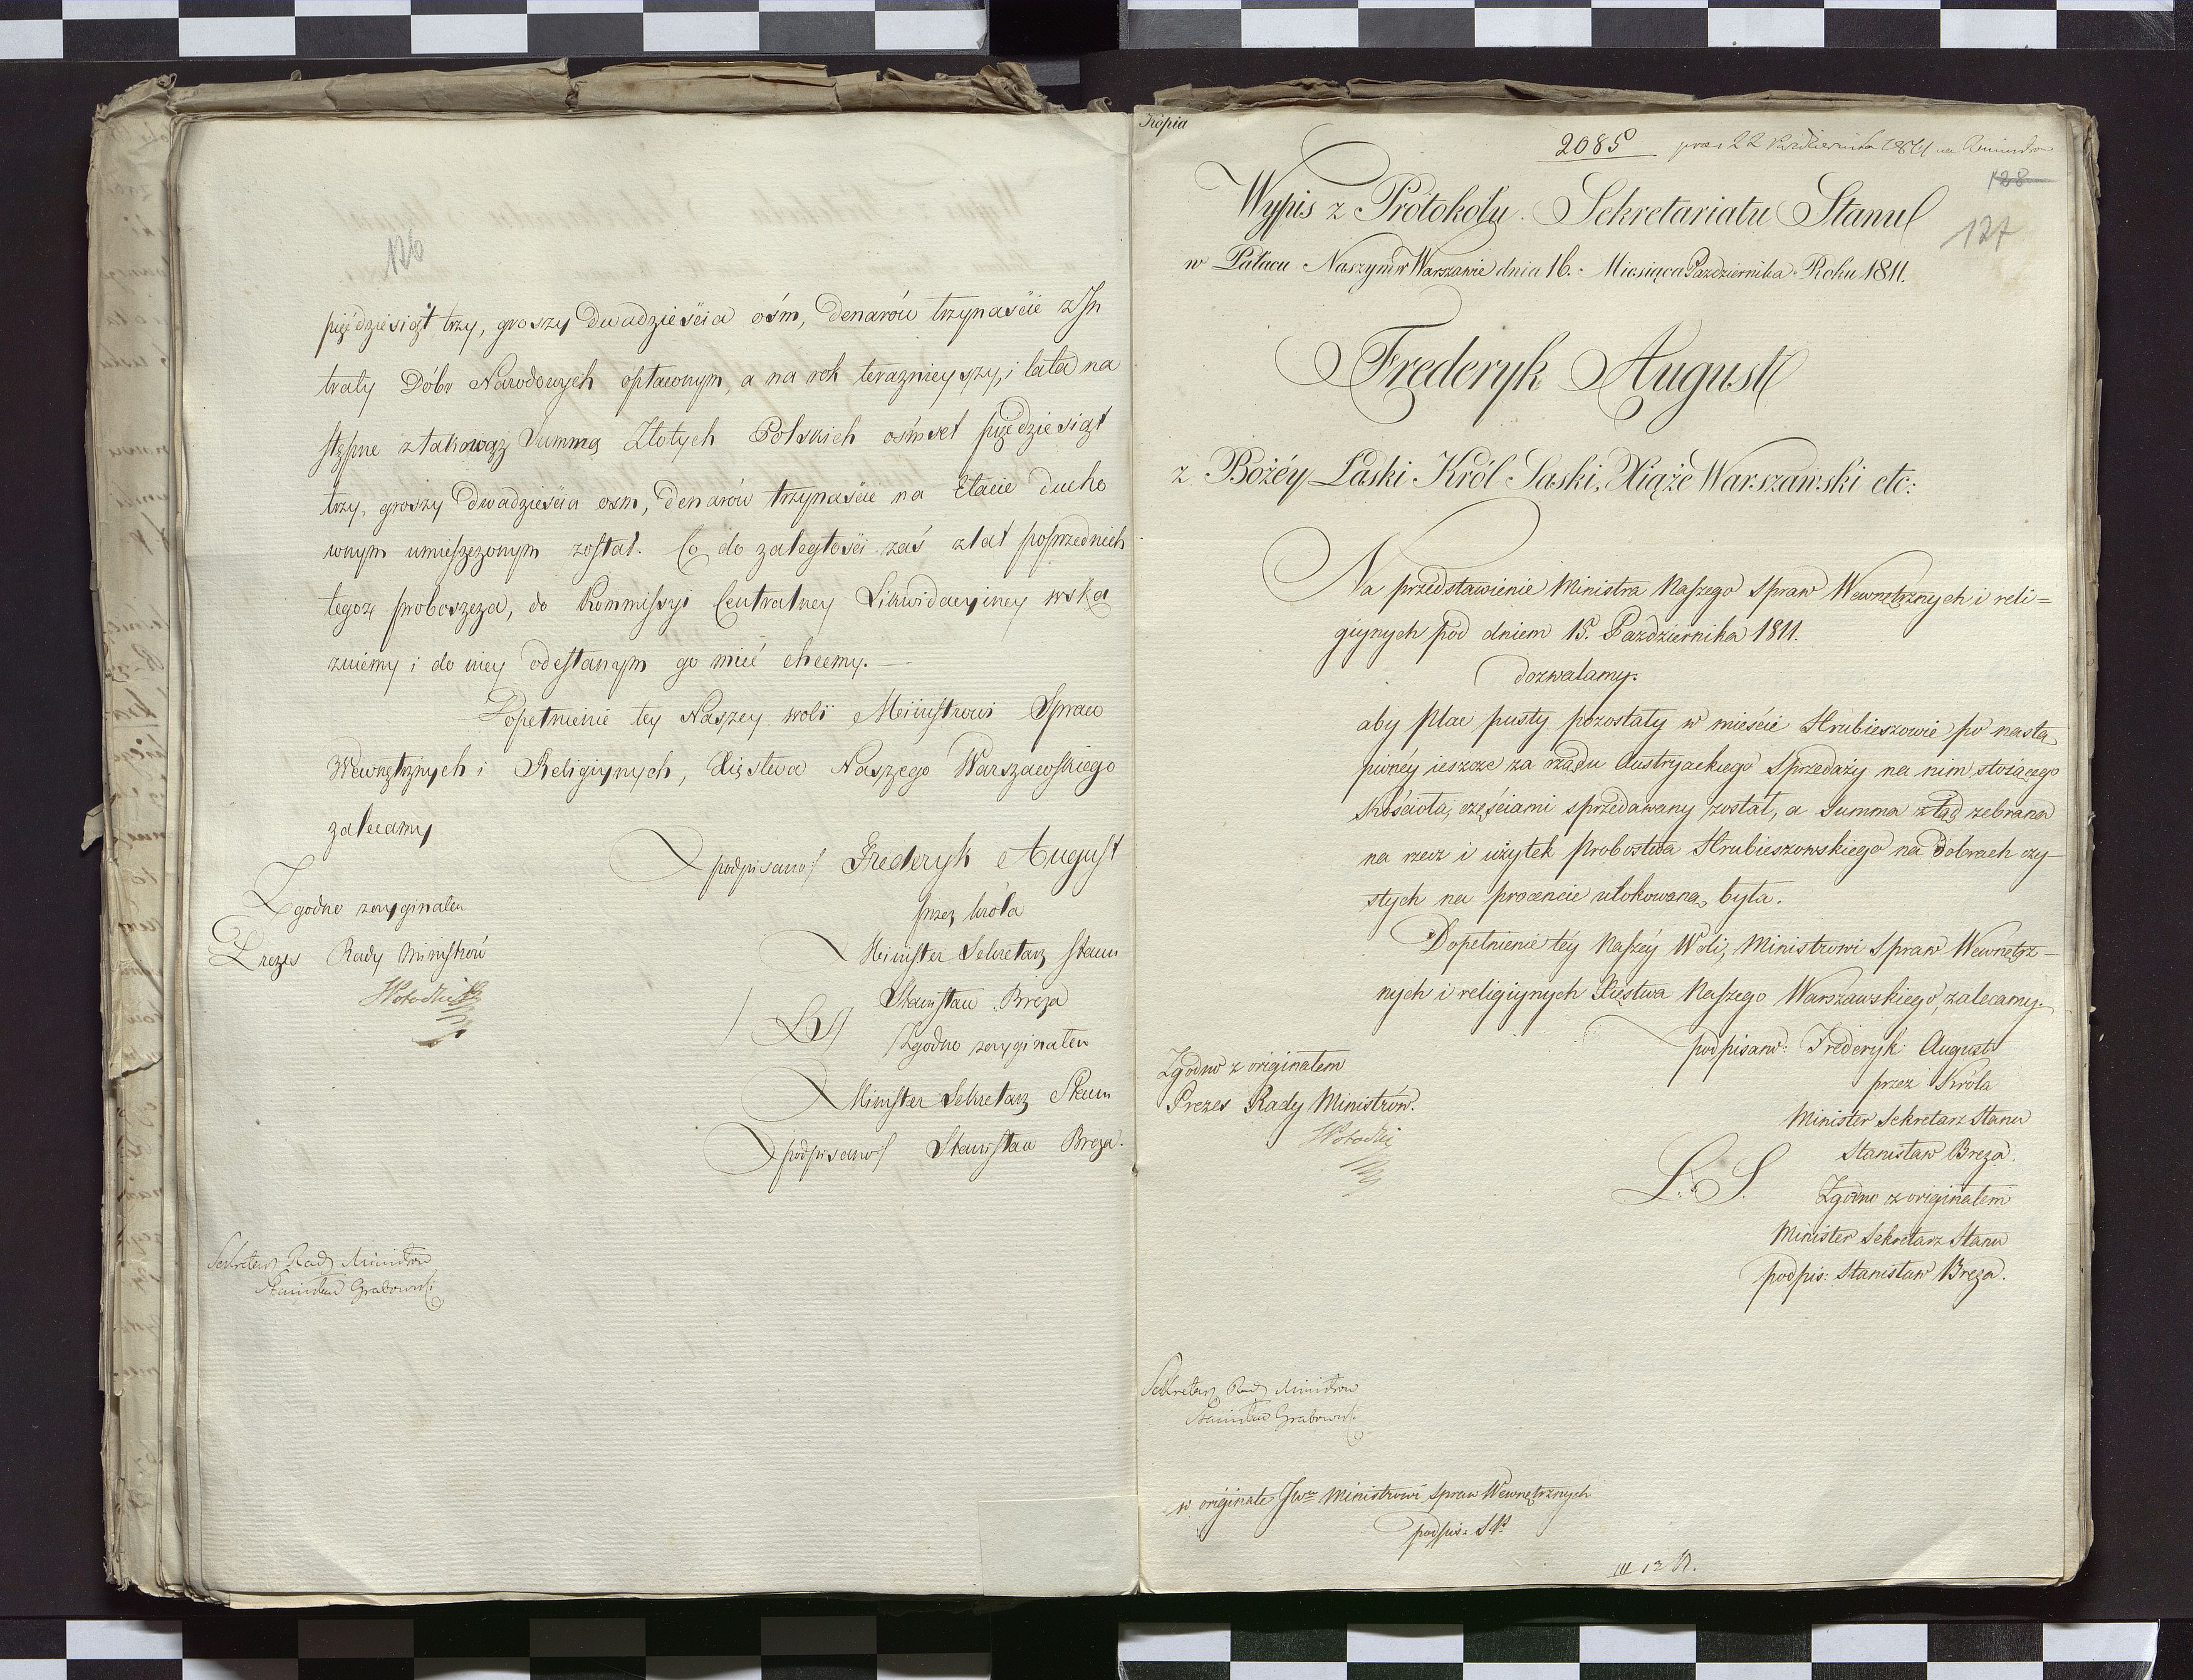 126
pięździesiąt trzy, groszy dwadzieścia ośm, denarów trzynaście z In
traty Dóbr Narodowych opłaconym, a na rok teraznieyszy, i lata na
stępne z takowąż Summą Złotych Polskich ośmset pięździesiąt
trzy, groszy dwadzieścia osm, denarów trzynaście na Etacie ducho
wnym umieszczonym został. Co do zaległości zaś z lat poprzednich
tegoż proboszcza, do Kommissyi Centralney Likwidacyiney wska
zuiemy i do niey odesłanym go mieć chcemy.
Dopełnienie tey Naszey wolii Ministrowi Spraw
Wewnętrznych i Religiynych, Xięstwa Naszego Warszawskiego
zalecamy
podpisano Frederyk August
przez króla
Minister Sekretarz Stanu
Stanisław Breza
LS
Zgodno zoryginałem
Minister Sekretarz Stanu
podpisano Stanisław Breza.
Zgodno zoryginałem
Prezes Rady Ministrów
Sekretarz Rady Ministrów
Stanisław Grabowski
Kopia
2085 prez 22 Października 1811
128
127
Wypis z Protokołu Sekretariatu Stanu
w Pałacu Naszym w Warszawie dnia 16. Miesiąca Pazdziernika Roku 1811.
Frederyk August
z Bożéy Łaski Król Saski, Xiąże Warszawski etc:
Na przedstawienie Ministra Naszego Spraw Wewnętrznych i reli=
giynych pod dniem 15. Pazdziernika 1811.
dozwalamy.
aby Plac pusty pozostały w mieście Hrubieszowie po nastą
pionéy ieszcze za rządu Austryackiego Sprzedaży na nim stoiącego
Kościoła, częściami sprzedawany został, a Summa z tąd zebrana
na rzecz i użytek Probostwa Hrubieszowskiego na Dobrach czy-
stych na procencie ulokowaną była.
Dopełnienie téy Naszéy Woli, Ministrowi Spraw Wewnętrz-
nych i religiynych Xięstwa Naszego Warszawskiego, zalecamy.
podpisano: Frederyk August
przez Króla
Minister Sekretarz Stanu
Stanisław Breza.
L. S. Zgodno z originałem
Minister Sekretarz Stanu
podpis: Stanisław Breza.
Zgodno z originałem
Prezes Rady Ministrów.
Sekretarz Rady Ministrów
Stanisław Grabowski
w originale JWmu Ministrowi Spraw Wewnętrznych
III 12 A.